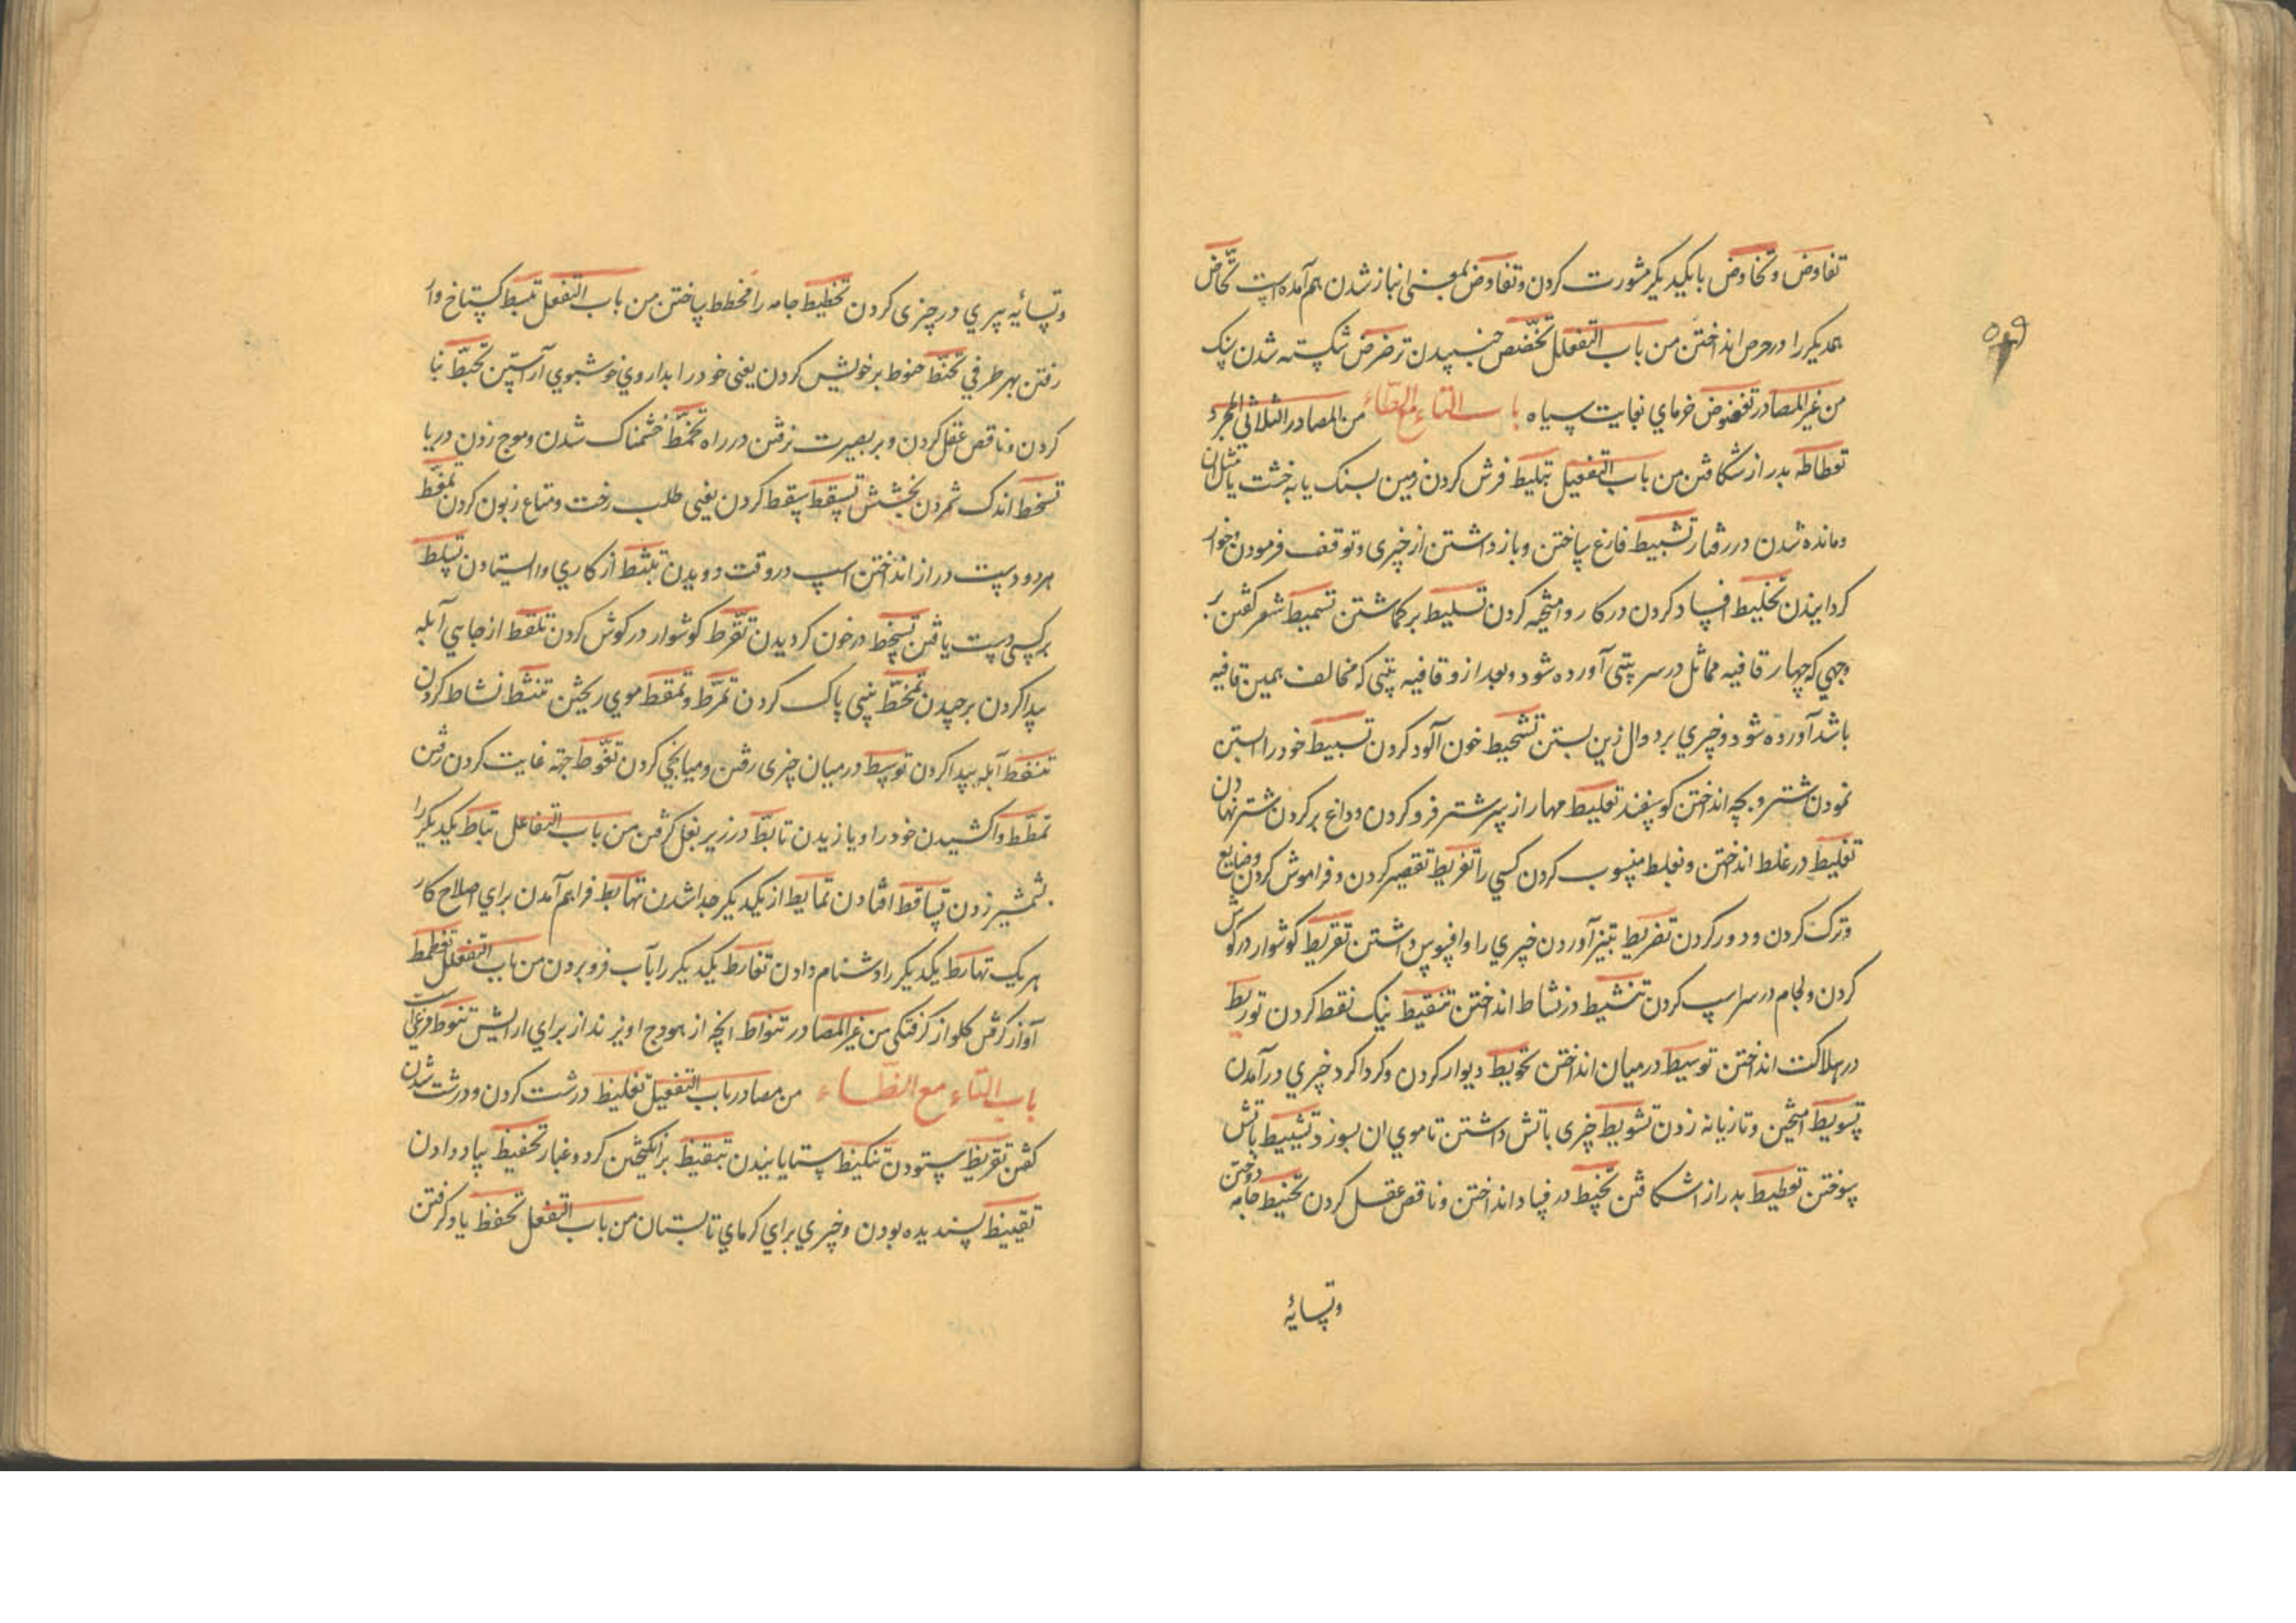 تفاوض وتخاوض بایکدیکر مشورت کردن وتفاوض بمعنی انباز شدن هم آمده است تحاض
همدیکر را در حرص انداختن من باب التفعلل تخضخض جنبیدن ترضرض شکسته شدن سنک
من غیر المصادر تعضوض خرمای بغایت سیاه باب التاء مع الطاء من المصادر الثلاثی المجرد
تعطاطه بدرازا شکافتن من باب التفعیل تبلیط فرش کردن زمین بسنک یا بخشت یا مثل آن
ومانده شدن در رفتار تثبیط فارغ ساختن وباز داشتن از چیزی وتوقف فرمودن وخوار
کردانیدن تخلیط افساد کردن در کار وآمیخته کردن تسلیط برکماشتن تسمیط شعر کفتن بر
وجهی که چهار قافیه مماثل در سر بیتی آورده شود وبعد ازو قافیه بیتی که مخالف همین قافیه
باشد آورده شود وچیزی بر دوال زین بستن تشحیط خون آلود کردن تسبیط خود را آبستن
نمودن شتر وبچه انداختن کوسفند تعلیط مهار از سر شتر فرو کردن وداغ بر کردن شتر نهادن
تغلیط در غلط انداختن وبغلط منسوب کردن کسی را تفریط تقصیر کردن وفراموش کردن وضایع
وترک کردن ودور کردن تفریط بتیز آوردن چیزی را وافسوس داشتن تقریط کوشوار در کوش
کردن ولجام در سر اسپ کردن تنشیط در نشاط انداختن تنقیط نیک نقط کردن توریط
در هلاکت انداختن توسیط در میان انداختن تحویط دیوار کردن وکرداکرد چیزی در آمدن
تسویط آمیختن وتازیانه زدن تشویط چیزی باتش داشتن تا موی ان بسوزد تشییط باتش
سوختن تعطیط بدرازا شکافتن تخبیط در فساد انداختن وناقص عقل کردن تخییط جامه دوختن
وتسائیه
وتسائیه سیری در چیزی کردن تخطیط جامه را مخطط ساختن من باب التفعل تبسط کستاخ وار
رفتن بهر طرفی تحنط حنوط بر خویش کردن یعنی خود را بداروی خوشبوی آراستن تخبط تبا
کردن وناقص عقل کردن وبر بصیرت نرفتن در راه تخمط خشمناک شدن وموج زدن دریا
تسخط اندک شمردن بخشش تسقط سقط کردن یعنی طلب رخت ومتاع زبون کردن تمغط
هر دو دست دراز انداختن اسپ در وقت دویدن تثبط از کاری وا ایستادن تسلط
بر کسی دست یافتن تشحط در خون کردیدن تقرط کوشوار در کوش کردن تلقط از جایی آبله
پیدا کردن برچیدن تمخط بینی پاک کردن تمرط وتمعط موی ریختن تنشط نشاط کردن
تنفط آبله پیدا کردن توسط در میان چیزی رفتن ومیانجی کردن تغوط جهة غایت کردن رفتن
تمطط واکشیدن خود را ویازیدن تابط در زیر بغل کرفتن من باب التفاعل تباط یکدیکر را
بشمشیر زدن تساقط افتادن تمایط از یکدیکر جدا شدن تهابط فراهم آمدن برای اصلاح کار
هر یک تهارط یکدیکر را دشنام دادن تغارط یکدیکر را بآب فرو بردن من باب التفعلل تغطمط
آواز کرفتن کلو از کرفتکی من غیر المصادر تنواط آنچه از هودج آویزند از برای ارایش تنوط مرغی است
باب التاء مع الظاء من مصادر باب التفعیل تغلیظ درشت کردن ودرشت شدن
کفتن تقریظ ستودن تنکیظ ستایانیدن تبقیظ برانکیختن کرد وغبار تحفیظ بیاد دادن
تقییظ پسندیده بودن وچیزی برای کرمای تابستان من باب التفعل تحفظ یاد کرفتن